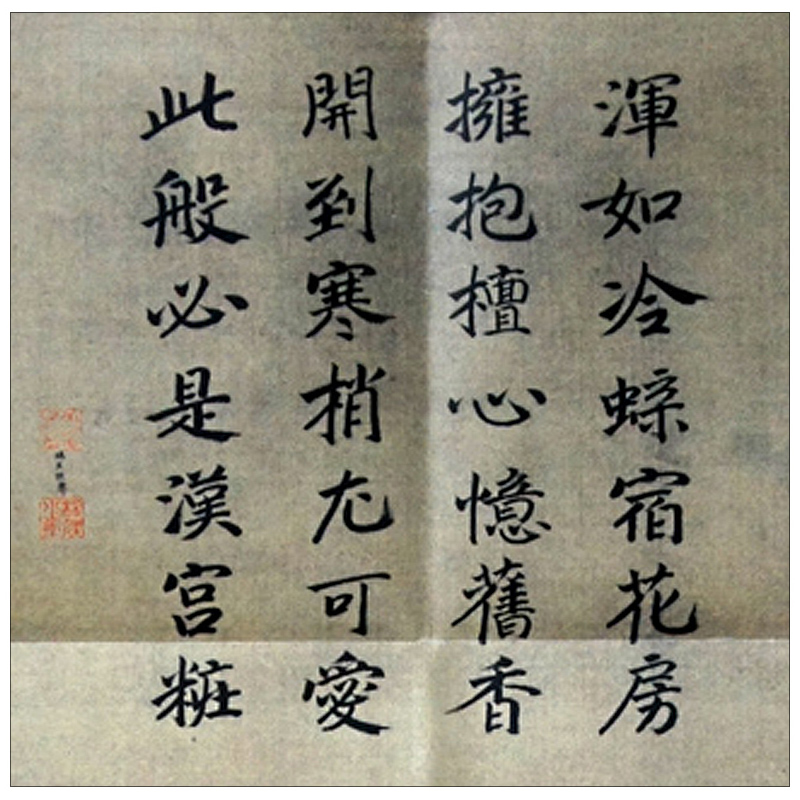 渾如冷蝾宿花房
擁抱檀心憶舊香
開到寒梢尤可愛
此般必是漢宮粧